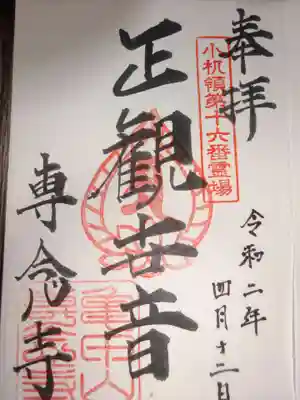 奉拝
小机領第十六番霊場
令和二年
四月十二日
正観世音
専念寺
亀甲山
専念寺